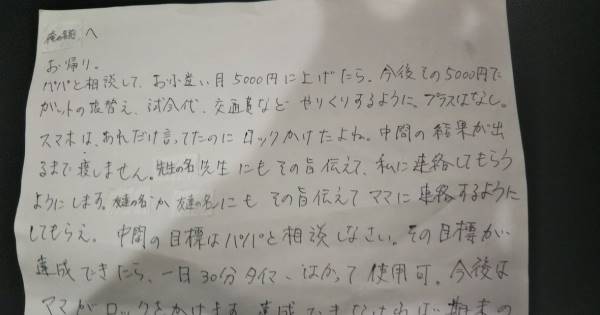 俺の名前 へ
お帰り。
パパと相談して、お小遣い月5000円に上げたら。今後その5000円で
ガットの張替え、試合代、交通費など やりくりするように。プラスはなし。
スマホは、あれだけ言ってたのに ロックかけたよね。中間の結果が出
るまで渡しません。先生の名 先生にもその旨伝えて、私に連絡してもらう
ようにします。友達の名 か 友達の名 にも その旨伝えて ママに連絡するように
してもらえ。中間の目標はパパと相談しなさい。その目標が
達成できたら、一日30分タイマーはかって使用可。今後は
ママがロックをかけます。達成できなければ期末の